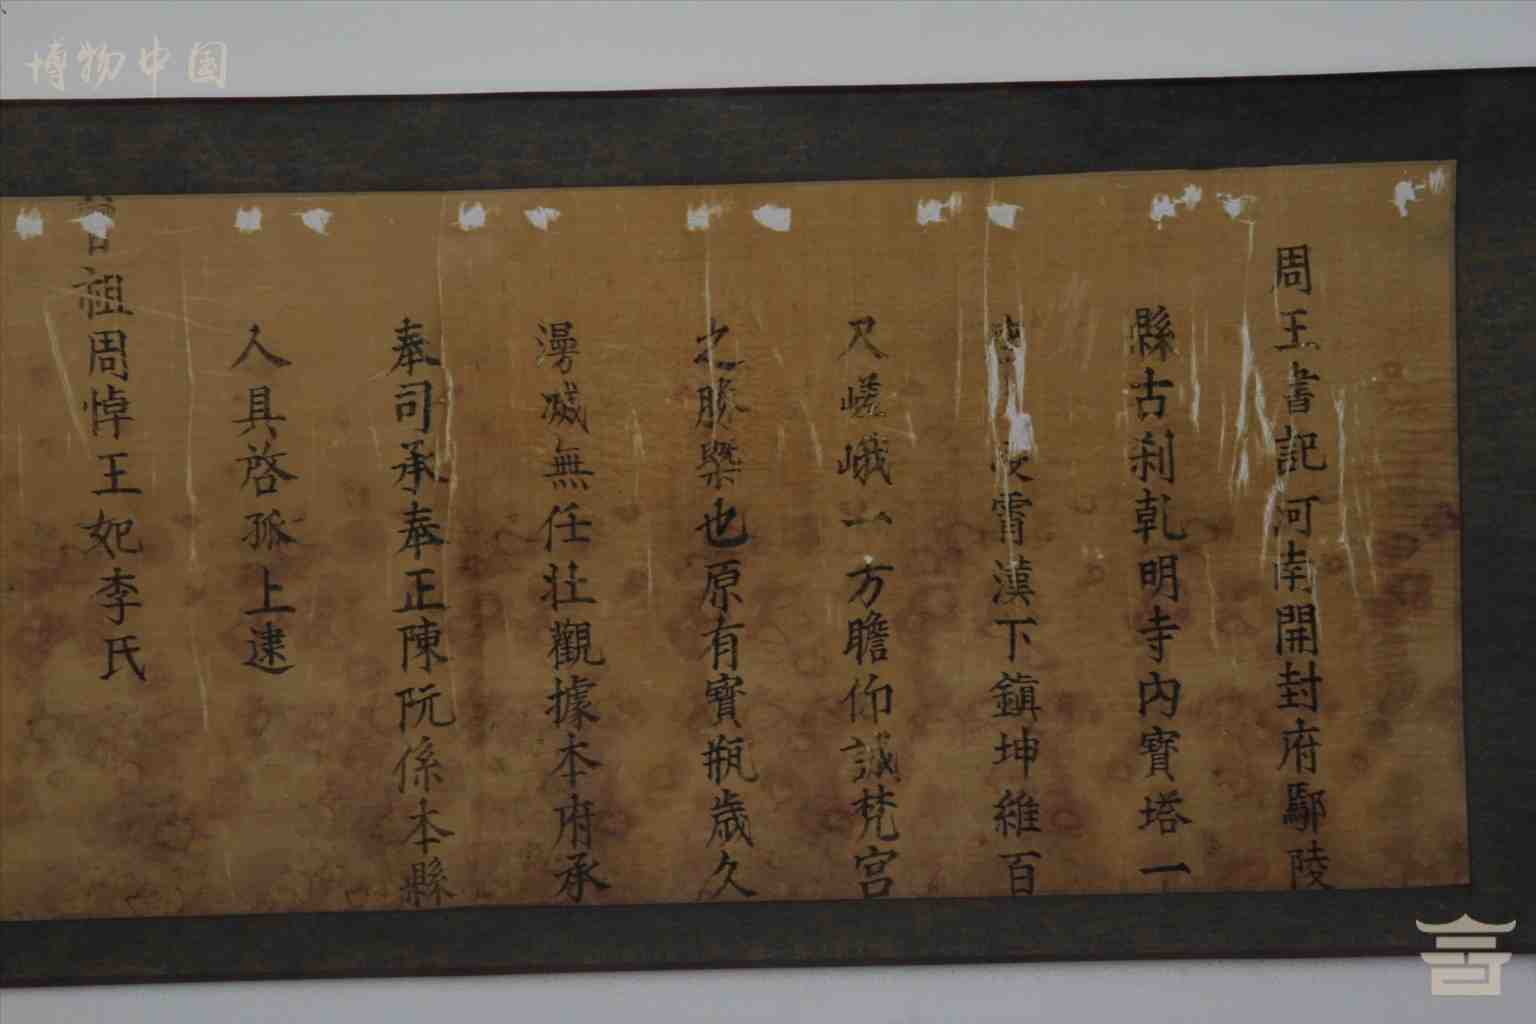 博物中国
周王書記河南開封府鄢陵
縣古刹乾明寺內寶塔一
霄漢下鎮坤維百
尺嵯峨一方瞻仰誠梵宮
之勝槩也原有寶瓶歲久
漫滅無任壯觀據本府承
奉司承奉正陳阮係本縣
人具啓孤上逮
祖周悼王妃李氏